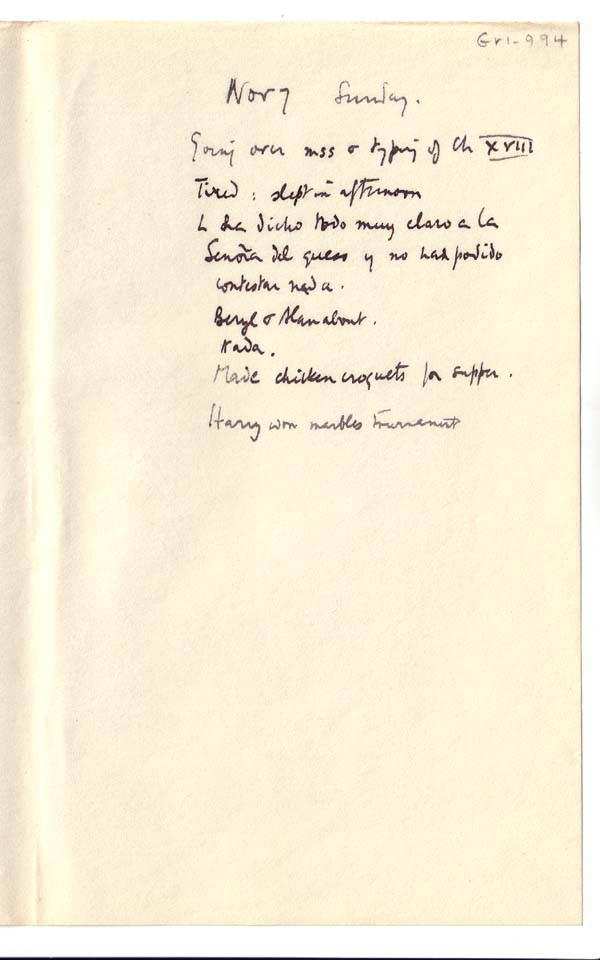 Gr1-994
Nov 7 Sunday.
Going over mss & typing of Ch XVIII
Tired : slept in afternoon
L ha dicho todo muy claro a la
Señora del queso y no had podido
contestar nada.
Beryl & Alan about.
Nada.
Made chicken croquets for supper.
Harry won marbles tournament